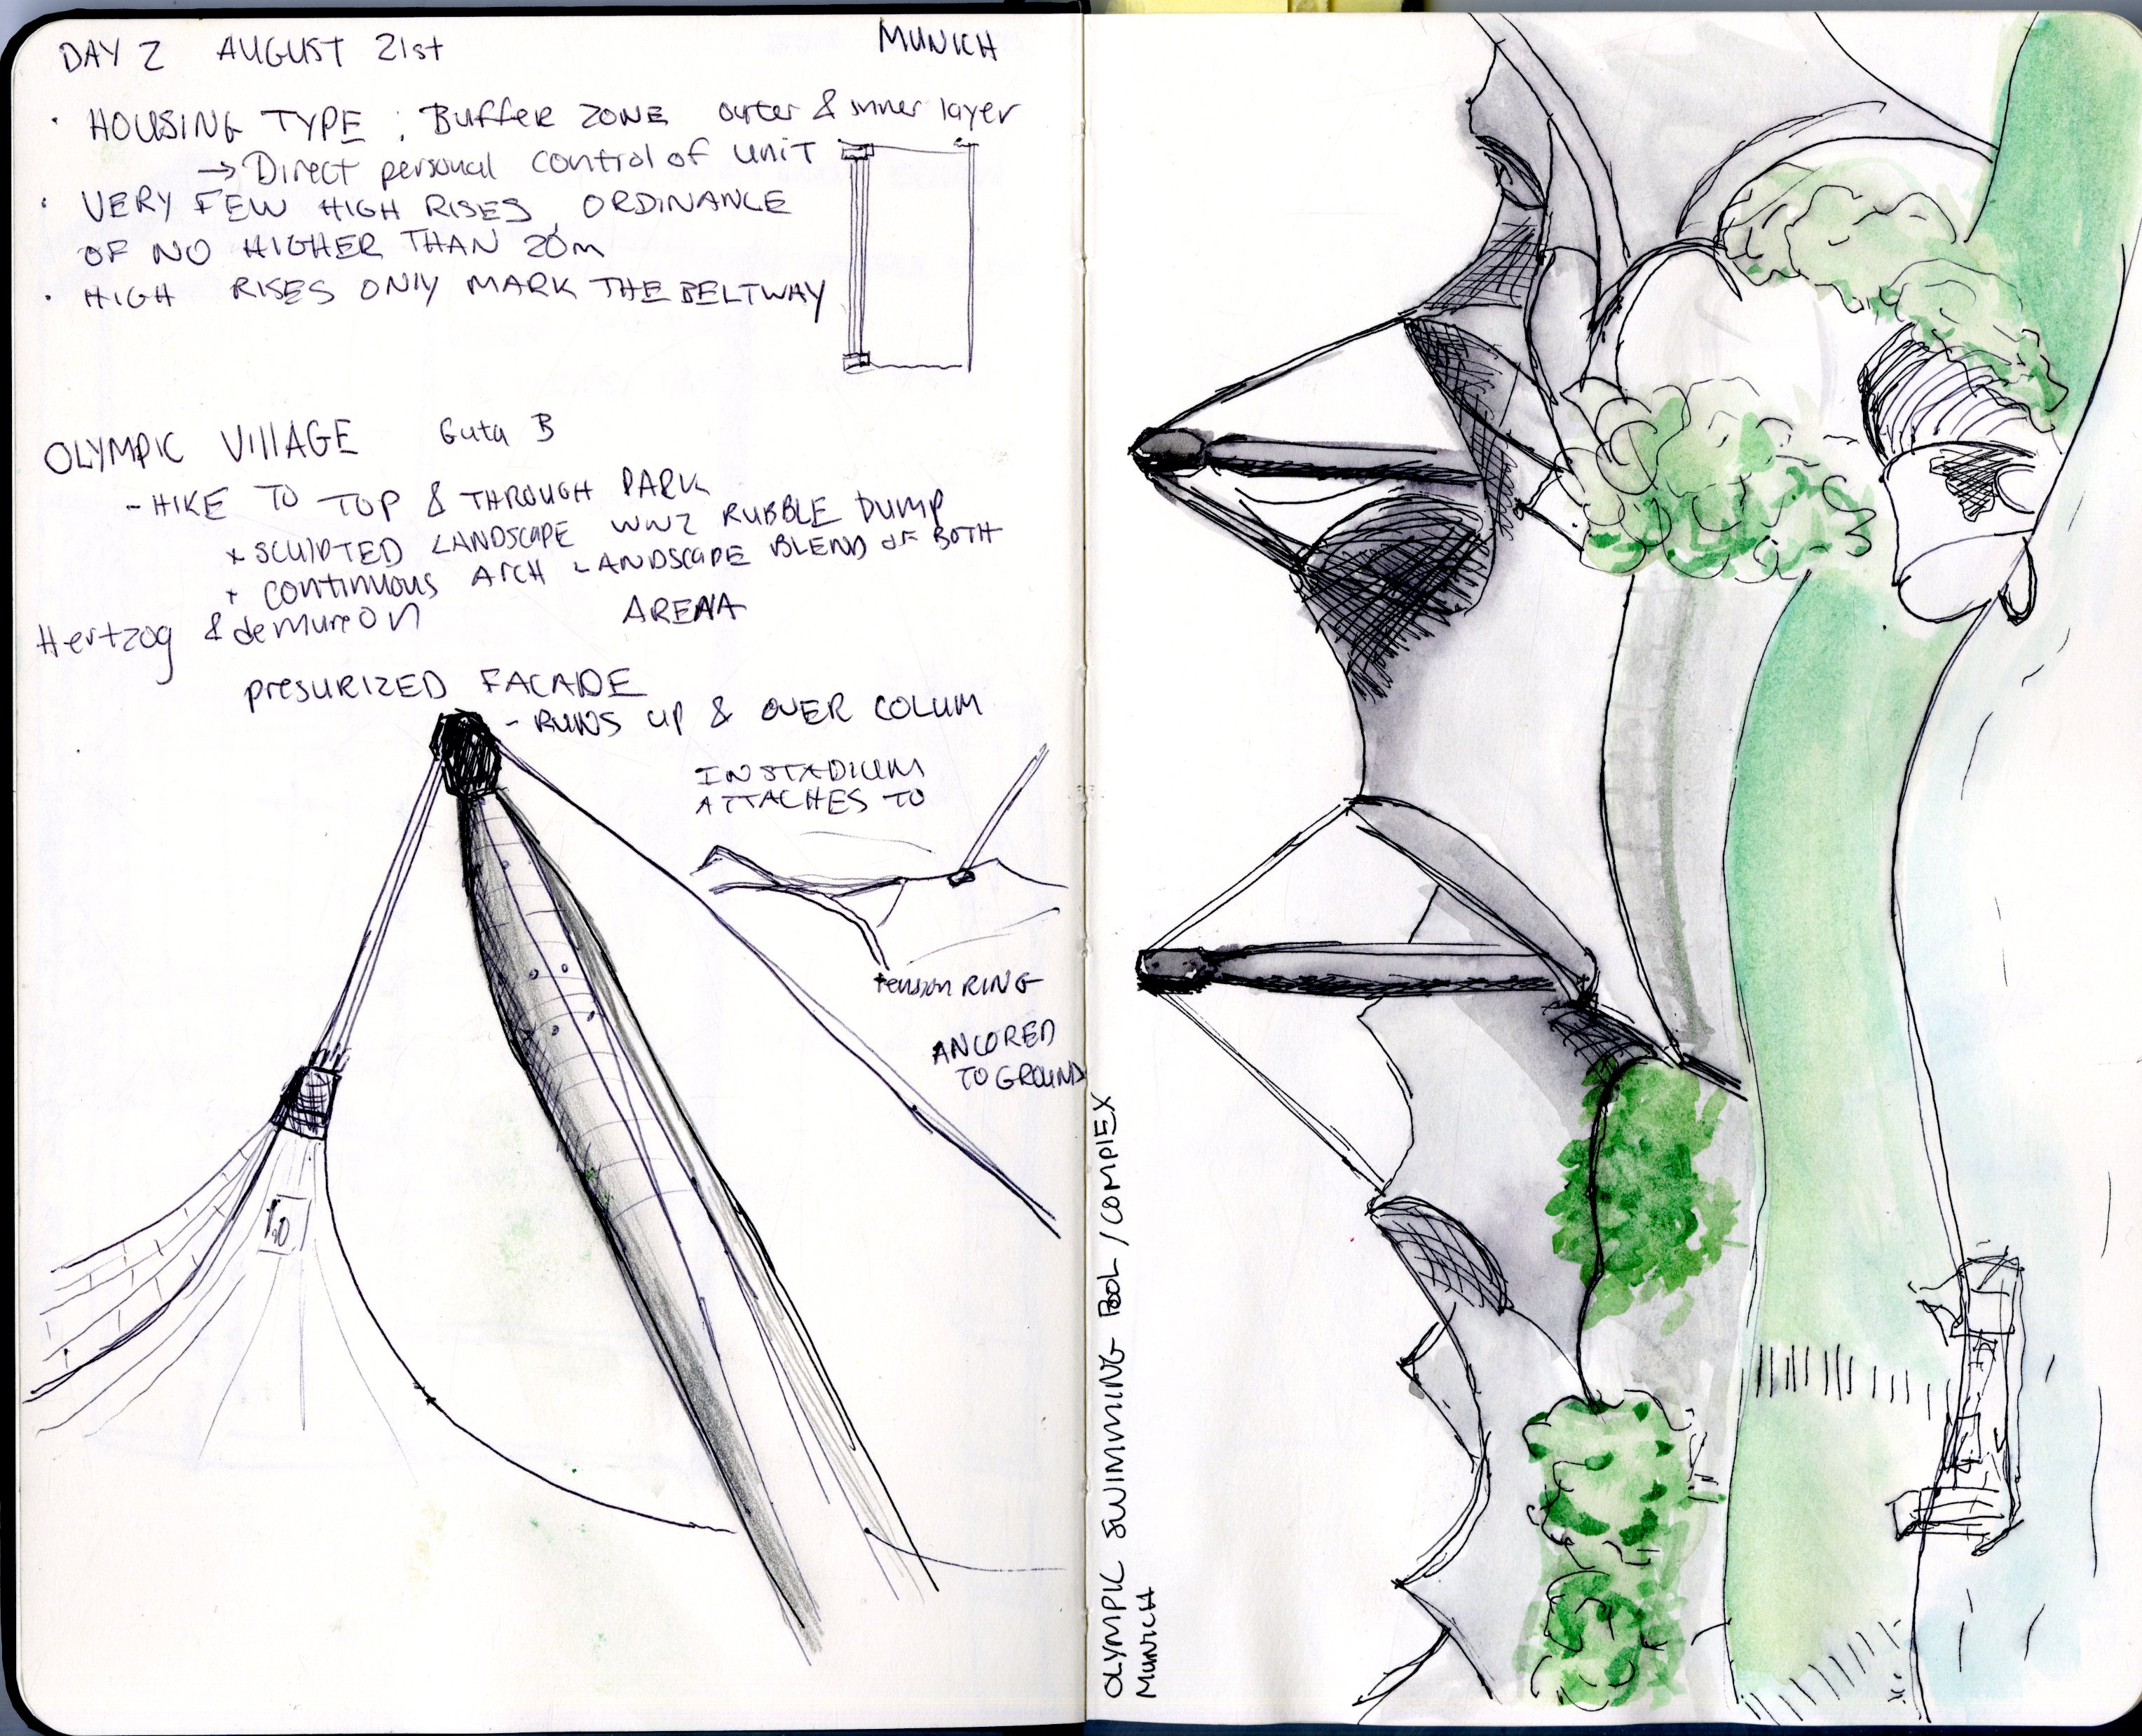 DAY 2 AUGUST 21st MUNICH
· HOUSING TYPE : BuffER ZONE outer & inner layer
→ Direct personal control of UNIT
· VERY FEW HIGH RISES, ORDINANCE
OF NO HIGHER THAN 20m
· HIGH RISES ONLY MARK THE BELTWAY
OLYMPIC VIllAGE Guta B
- HIKE TO TOP & THROUGH PARK
x SCULPTED LANDSCAPE WW2 RUBBLE DUMP
+ continuous ARCH LANDSCAPE BLEND OF BOTH
Hertzog & demureon ARENA
presURIZED FACADE
- RUNS UP & OVER COLUM
IN STADIUM
ATTACHES TO
tension RING
ANCORED
TO GROUND
OLYMPIC SWIMMING POOL / COMPlEX
MUNICH